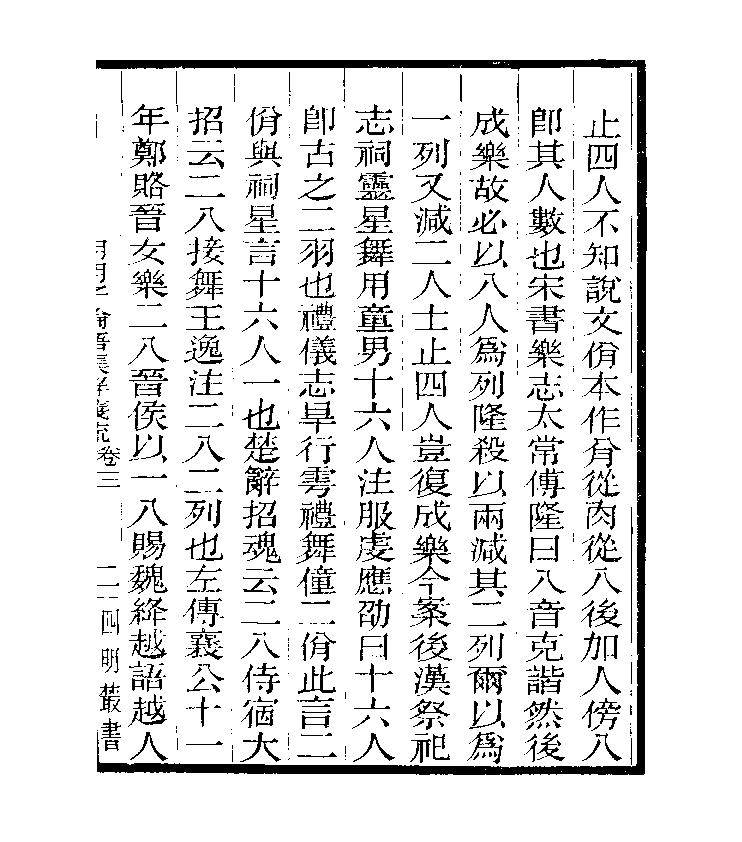 止四人不知說文佾本作㑞從肉從八後加人傍八
卽其人數也宋書樂志太常傅隆曰八音克諧然後
成樂故必以八人爲列隆殺以兩減其二列爾以爲
一列又減二人士止四人豈復成樂今案後漢祭祀
志祠靈星舞用童男十六人注服虔應劭曰十六人
卽古之二羽也禮儀志旱行雩禮舞僮二佾此言二
佾與祠星言十六人一也楚辭招魂云二八侍宿大
招云二八接舞王逸注二八二列也左傳襄公十一
年鄭賂晉女樂二八晉侯以一八賜魏絳越語越人
卷三 二 四明叢書